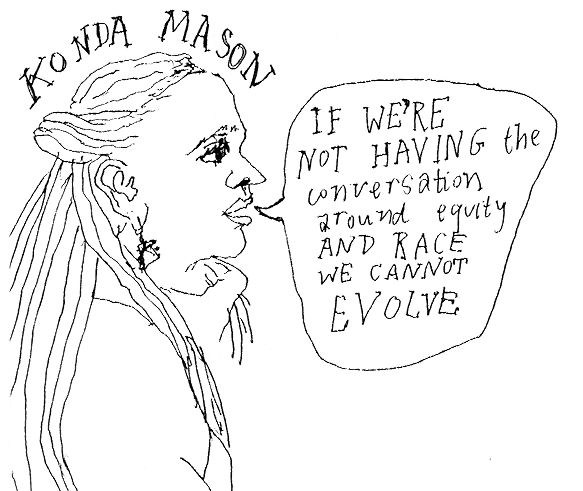 KONDA MASON
IF WE'RE
NOT HAVING the
conversation
around equity
AND RACE
WE CANNOT
EVOLVE